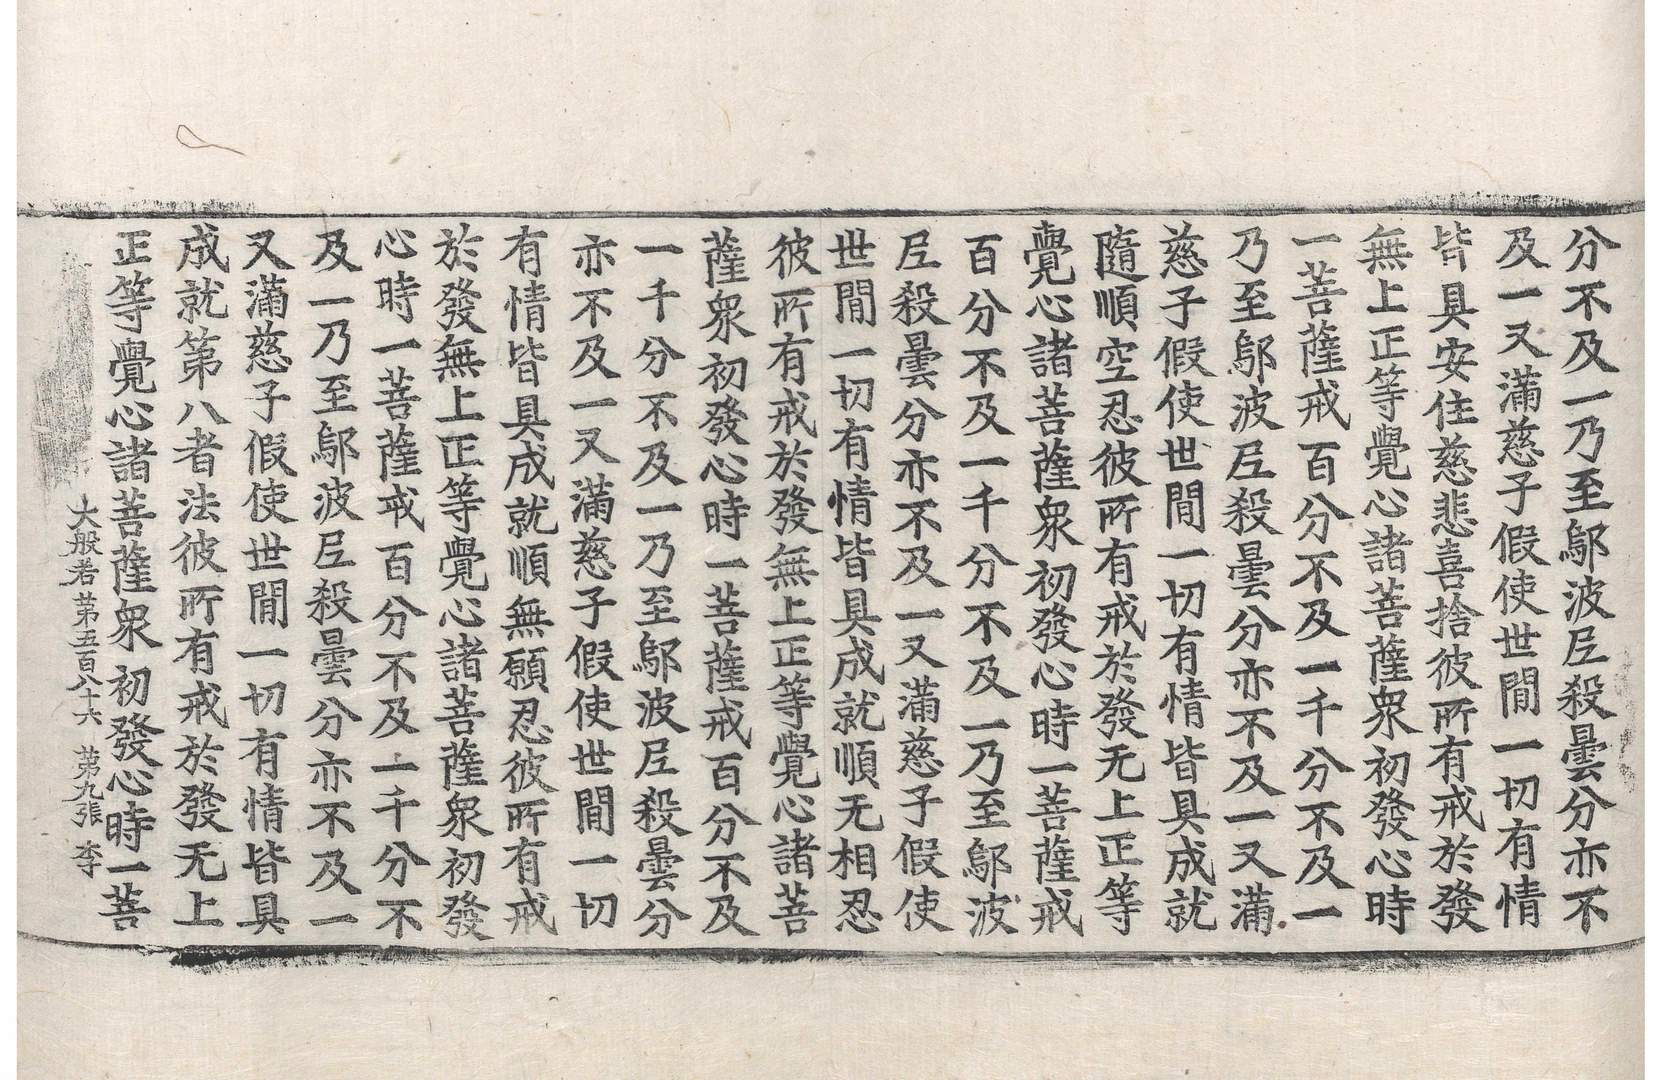 分不及一乃至鄔波尼殺曇分亦不
及一又滿慈子假使世間一切有情
皆具安住慈悲喜捨彼所有戒於發
無上正等覺心諸菩薩衆初發心時
一菩薩戒百分不及一千分不及一
乃至鄔波尼殺曇分亦不及一又滿
慈子假使世間一切有情皆具成就
隨順空忍彼所有戒於發无上正等
覺心諸菩薩衆初發心時一菩薩戒
百分不及一千分不及一乃至鄔波
尼殺曇分亦不及一又滿慈子假使
世間一切有情皆具成就順无相忍
彼所有戒於發無上正等覺心諸菩
薩衆初發心時一菩薩戒百分不及
一千分不及一乃至鄔波尼殺曇分
亦不及一又滿慈子假使世間一切
有情皆具成就順無願忍彼所有戒
於發無上正等覺心諸菩薩衆初發
心時一菩薩戒百分不及一千分不
及一乃至鄔波尼殺曇分亦不及一
又滿慈子假使世間一切有情皆具
成就第八者法彼所有戒於發无上
正等覺心諸菩薩衆初發心時一菩
大般若第五百八十六 第九張 李